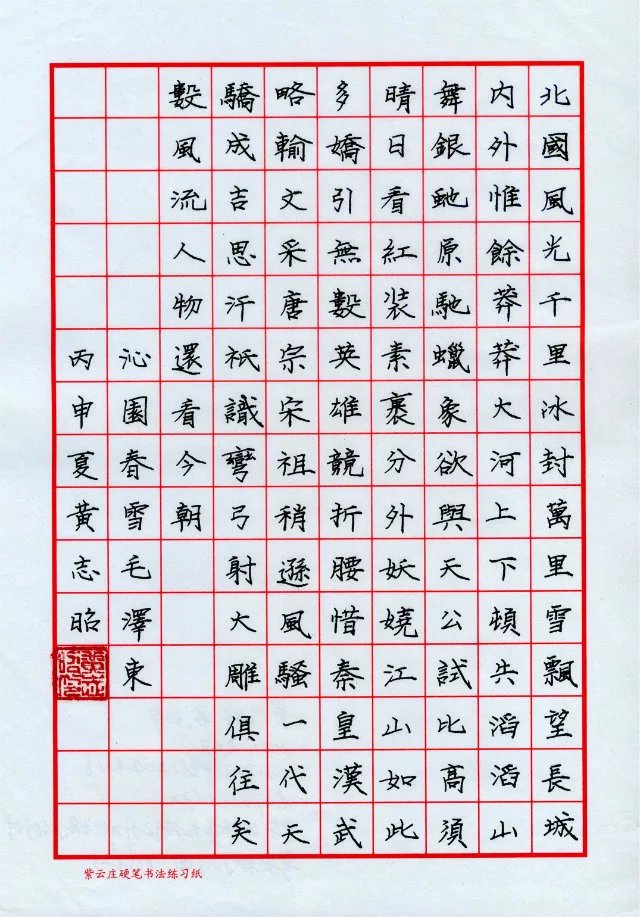 北國風光千里冰封萬里雪飄望長城
内外惟餘莽莽大河上下頓失滔滔山
舞銀虵原馳蠟象欲與天公試比高須
晴日看紅装素裹分外妖嬈江山如此
多嬌引無數英雄競折腰惜秦皇漢武
略輸文采唐宗宋祖稍遜風騷一代天
驕成吉思汗衹識彎弓射大雕俱往矣
數風流人物還看今朝
沁園春雪毛澤東
丙申夏黃志昭
紫云庄硬笔书法练习纸